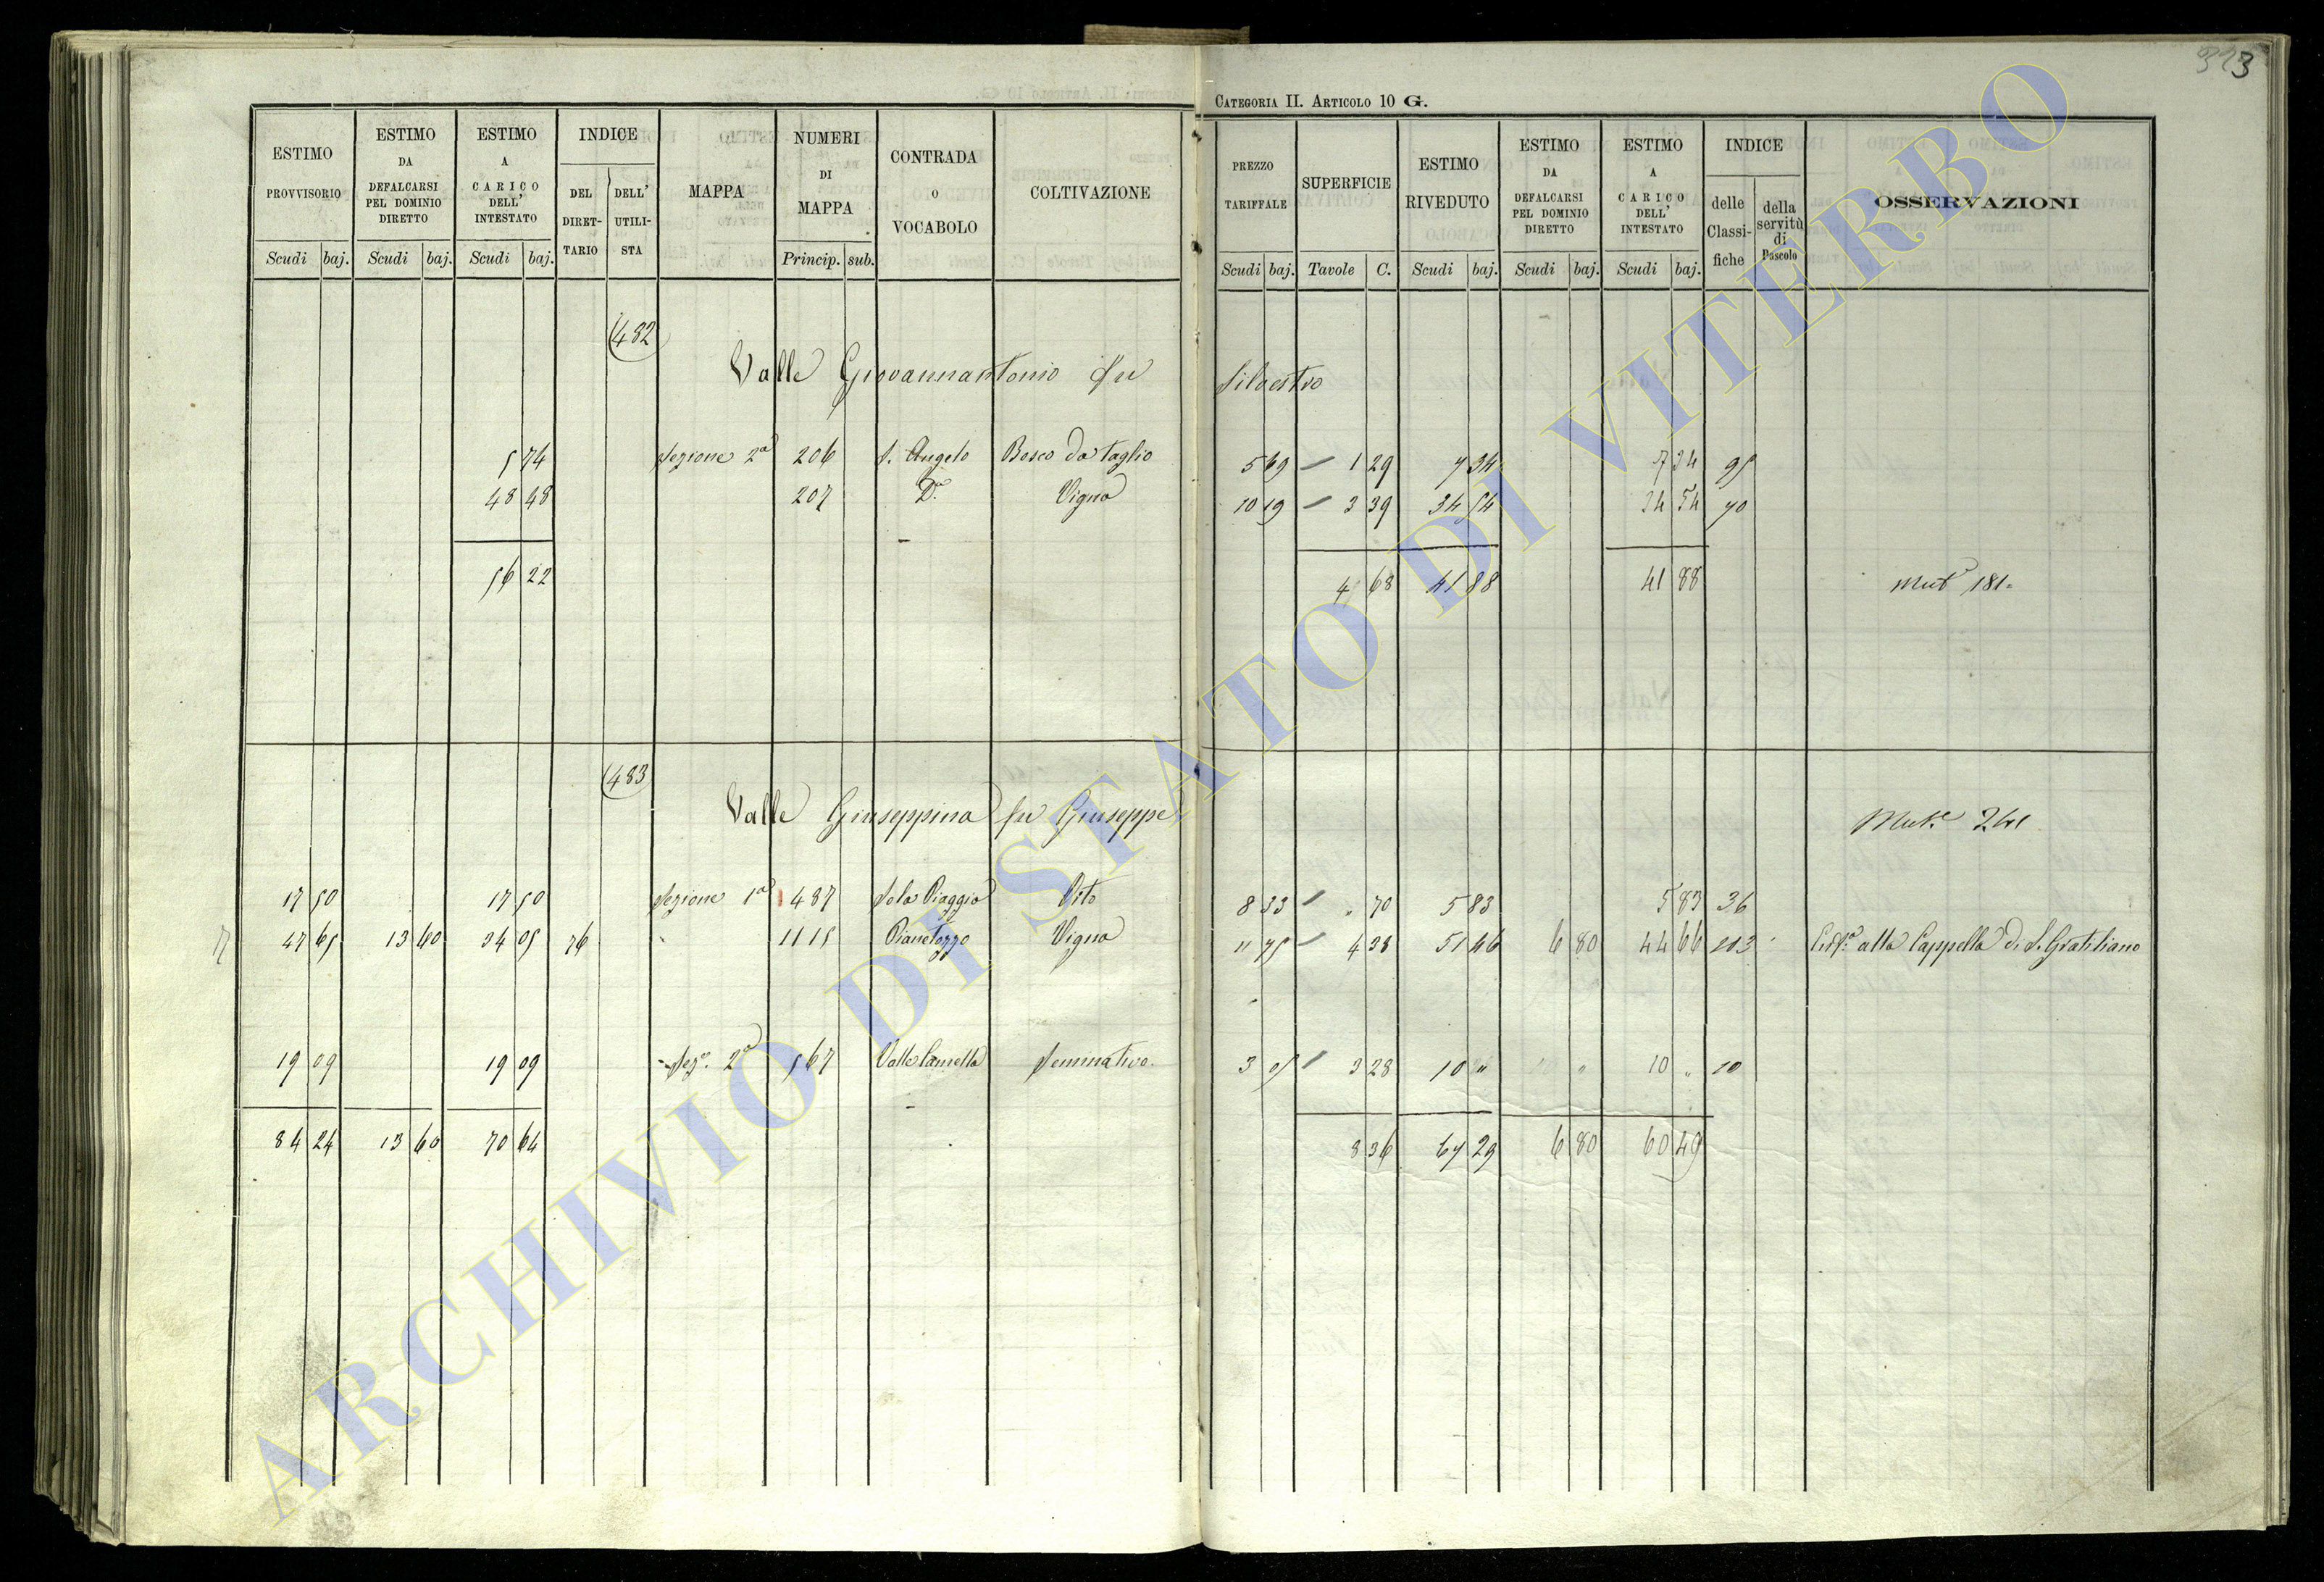 323
CATEGORIA II. ARTICOLO 10 G.
ESTIMO PROVVISORIO
ESTIMO DA DEFALCARSI PEL DOMINIO DIRETTO
ESTIMO A CARICO DELL' INTESTATO
INDICE
DEL DIRET-TARIO
DELL' UTILI-STA
MAPPA
NUMERI DI MAPPA
CONTRADA O VOCABOLO
COLTIVAZIONE
Scudi baj. Scudi baj. Scudi baj. Princip. sub.
PREZZO TARIFFALE
SUPERFICIE
ESTIMO RIVEDUTO
ESTIMO DA DEFALCARSI PEL DOMINIO DIRETTO
ESTIMO A CARICO DELL' INTESTATO
INDICE
delle Classi-fiche
della servitù di Pascolo
OSSERVAZIONI
Scudi baj. Tavole C. Scudi baj. Scudi baj. Scudi baj.
482
Valle Giovannantonio fu Silvestro
7 74 Sezione 2a 206 S. Angelo Bosco da taglio 5 69 1 29 7 34 7 34 95
48 48 207 Da Vigna 10 19 3 39 34 54 34 54 70
56 22 4 68 41 88 41 88 Mut 181
483
Valle Giuseppina fu Giuseppe Mut.e 241
17 50 17 50 Sezione 1a 487 Sola Piaggia Orto 8 33 " 70 5 83 5 83 36
47 65 13 60 34 05 76 1115 Pianetozzo Vigna 11 75 4 38 51 46 6 80 44 66 103 alla Cappella di S. Gratiliano
19 09 19 09 Sez. 2a 567 Valle Seminativo 3 05 3 28 10 " 10 " 10
84 24 13 60 70 64 8 36 67 29 6 80 60 49
ARCHIVIO DI STATO DI VITERBO